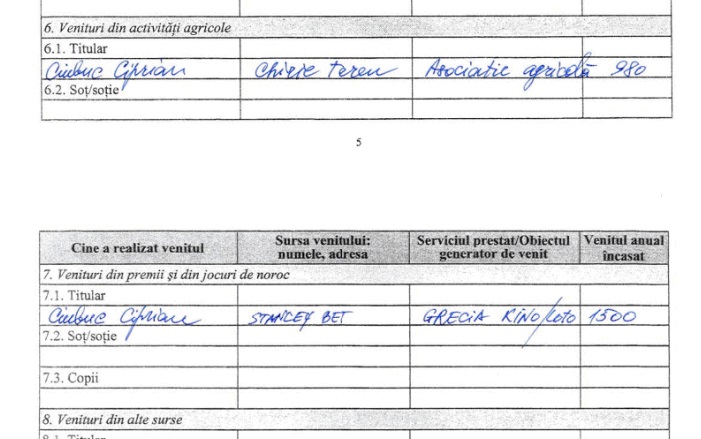 6. Venituri din activități agricole
6.1. Titular
Ciubuc Ciprian Chirie teren Asociatie agricolă 980
6.2. Soț/soție
5
Cine a realizat venitul Sursa venitului: numele, adresa Serviciul prestat/Obiectul generator de venit Venitul anual încasat
7. Venituri din premii și din jocuri de noroc
7.1. Titular
Ciubuc Ciprian STANLEY BET GRECIA KINO/Loto 1500
7.2. Soț/soție
7.3. Copii
8. Venituri din alte surse
8.1. Titular